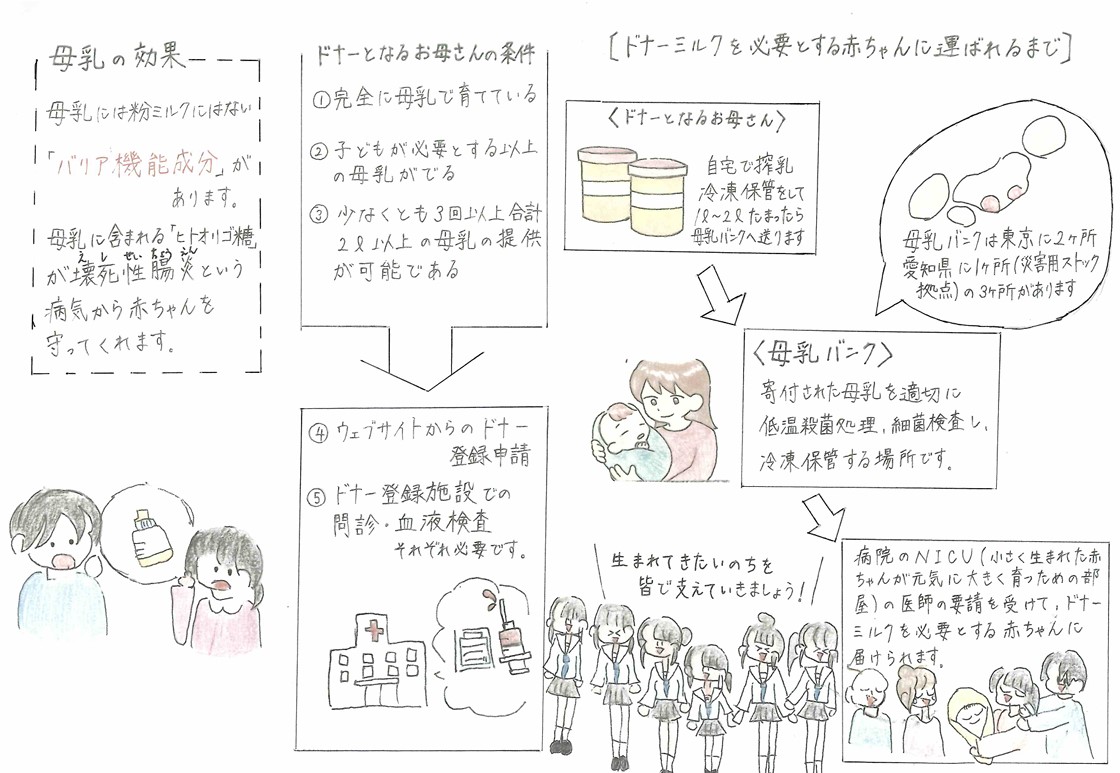 母乳の効果
母乳には粉ミルクにはない
「バリア機能成分」が
あります。
母乳に含まれる「ヒトオリゴ糖」
えしせいちょうえん
が壊死性腸炎という
病気から赤ちゃんを
守ってくれます。
ドナーとなるお母さんの条件
①完全に母乳で育てている
②子どもが必要とする以上
の母乳がでる
③少なくとも3回以上合計
2ℓ以上の母乳の提供
が可能である
④ウェブサイトからのドナー
登録申請
⑤ドナー登録施設での
問診・血液検査
それぞれ必要です。
[ドナーミルクを必要とする赤ちゃんに運ばれるまで]
〈ドナーとなるお母さん〉
自宅で搾乳
冷凍保管をして
1ℓ～2ℓたまったら
母乳バンクへ送ります
母乳バンクは東京に2ヶ所
愛知県に1ヶ所(災害用ストック
拠点)の3ヶ所があります
〈母乳バンク〉
寄付された母乳を適切に
低温殺菌処理、細菌検査し、
冷凍保管する場所です。
生まれてきたいのちを
皆で支えていきましょう!
病院のNICU(小さく生まれた赤
ちゃんが元気に大きく育つための部
屋)の医師の要請を受けて、ドナー
ミルクを必要とする赤ちゃんに
届けられます。